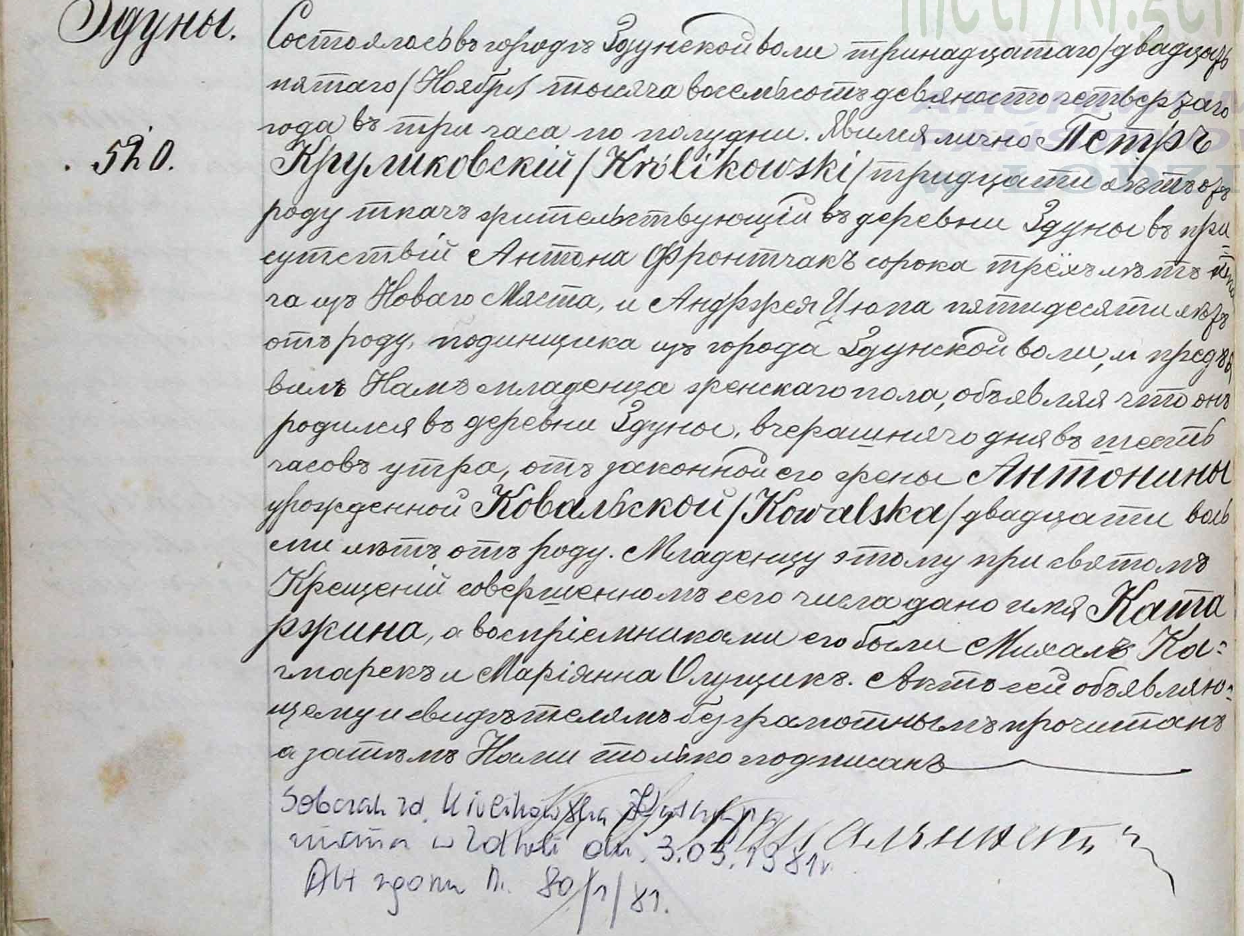 Здуны.
520.
Состоялось въ городѣ Здунской воли тринадцатаго/двадцать
пятаго/Ноября тысяча восемьсотъ девяносто четвертаго
года въ три часа по полудни. Явился лично Петръ
Круликовскій /Królikowski/ тридцати лѣтъ отъ
роду ткачъ жительствующій въ деревни Здуны въ при=
сутствій Антона Фронтчакъ сорока трёхъ лѣтъ
га изъ Новаго Мяста, и Андржея Цюпа пятидесяти лѣтъ
отъ роду, подинщика изъ города Здунской воли, и предъя
вилъ Намъ младенца женскаго пола, объявляя что онъ
родился въ деревни Здуны, вчерашнячо дня въ шесть
часовъ утра, отъ законной его жены Антонины
урожденной Ковальской /Kowalska/ двадцати вось
ми лѣтъ отъ роду. Младенцу этому при святомъ
Крещеній совершенномъ сего числа дано имя Ката
ржина, а воспріемниками его были Михалъ Ка=
чмарекъ и Маріянна Олущикъ. Актъ сей объявляю=
щему и свидѣтелямъ безграмотнымъ прочитанъ
а затѣмъ Нами только подписанъ
zd.
dn. 3.03.1981r.
Akt zgonu Nr. 80/1/81.